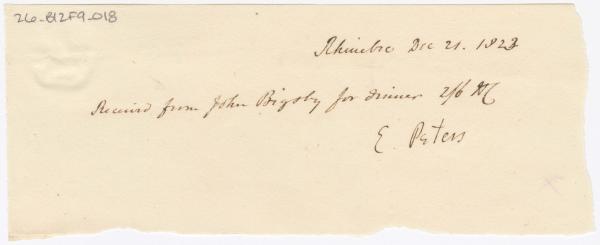 26-B12F9-018
Rhinebec Dec 21. 1823
Received from John Bigsby for dinner 2/6
E. Peters